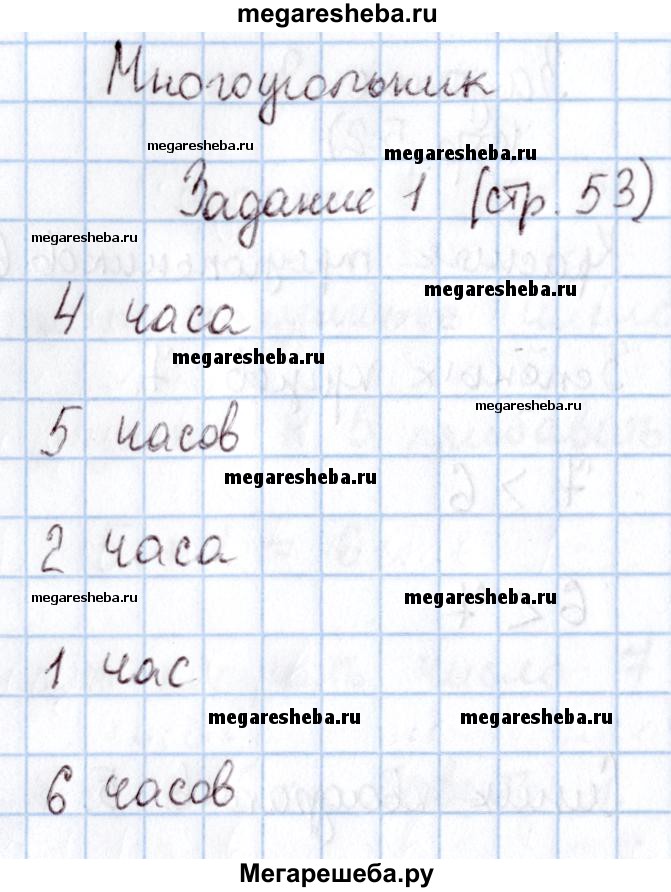 megaresheba.ru
Многоугольник
megaresheba.ru
megaresheba.ru
Задание 1 (стр. 53)
megaresheba.ru
megaresheba.ru
4 часа
megaresheba.ru
megaresheba.ru
5 часов
megaresheba.ru
megaresheba.ru
2 часа
megaresheba.ru
megaresheba.ru
1 час
megaresheba.ru
megaresheba.ru
6 часов
Мегарешеба.ру